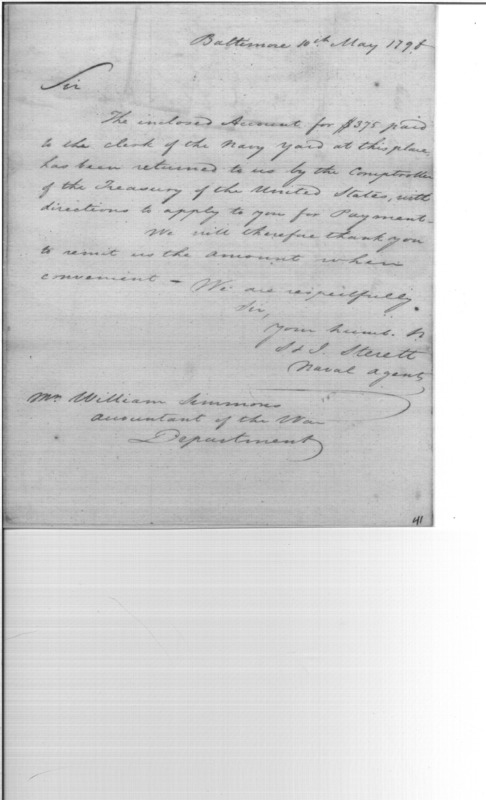 Baltimore 10th May 1798
Sir
The enclosed Account for $375 paid
to the clerk of the Navy Yard at this place,
has been returned to us by the Comptroller
of the Treasury of the United States, with
directions to apply to you for Payment.
We will therefore thank you
to remit us the amount when
convenient - We are respectfully
Sir,
Your humb.
S & J. Sterett
Naval Agents
Mr. William Simmons
Accountant of the War
Department
41